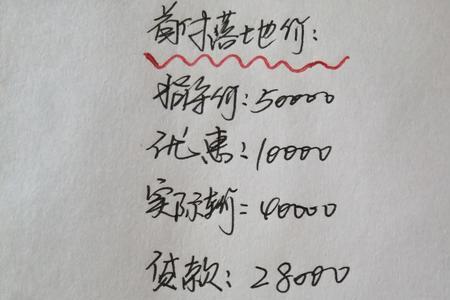 首付落地价:
指导价:50000
优惠:10000
实际车价=40000
贷款:28000